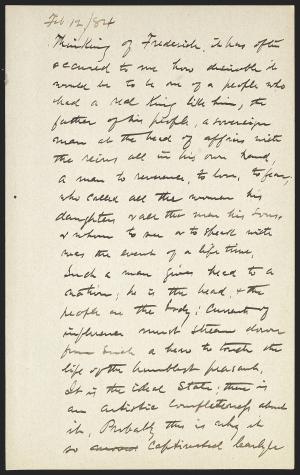 Feb 12/84
Thinking of Frederick, it has often
occured to me how desirable it
would be to be one of a people who
had a real King like him, the
father of his people, a sovereign
man at the head of affairs with
the reins all in his own hand,
a man to reverence, to love, to fear,
who called all the women his
daughters & all the men his sons,
& whom to see or to speak with
was the event of a life time.
Such a man gives head to a
nation; he is the head, & the
people are the body; Currents of
influence must stream down
from such a hero to touch the
life of the humblest peasant.
It is the ideal State; there is
an artistic completeness about
it. Probably this is why it
so captivated Carlyle